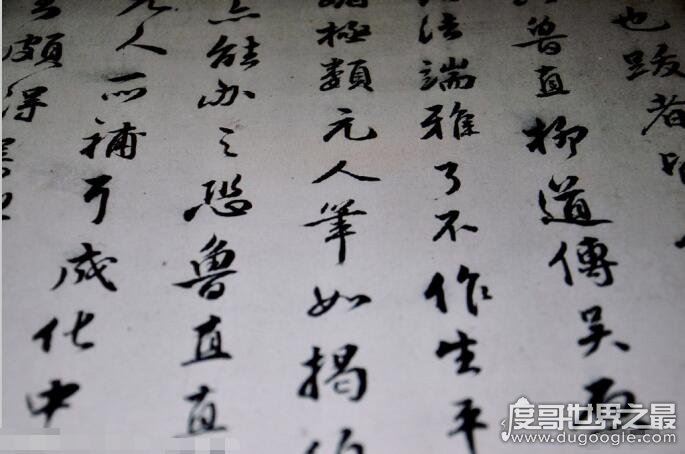 也跋者
魯直柳道傳吳
法端雅了不作生平
極類元人筆如揭
能办之恐魯直直
人所補耳成化中
頗得
度哥世界之最
www.dugoogle.com